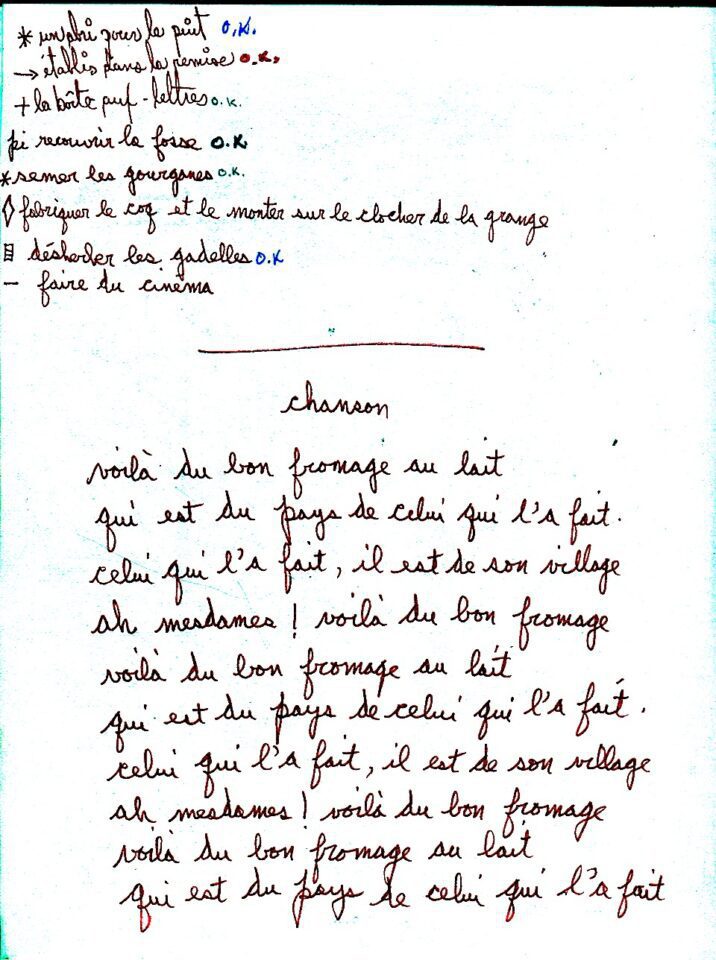 * un abri pour le puit O.K.
→ établis dans la remise O.K.
+ la boîte put-lettres O.K.
pi recouvrir la fosse O.K.
* semer les gourganes O.K.
◊ fabriquer le coq et le monter sur le clocher de la grange
désherber les gadelles O.K
— faire du cinéma
chanson
voilà du bon fromage au lait
qui est du pays de celui qui l'a fait.
celui qui l'a fait, il est de son village
ah mesdames ! voilà du bon fromage
voilà du bon fromage au lait
qui est du pays de celui qui l'a fait.
celui qui l'a fait, il est de son village
ah mesdames ! voilà du bon fromage
voilà du bon fromage au lait
qui est du pays de celui qui l'a fait